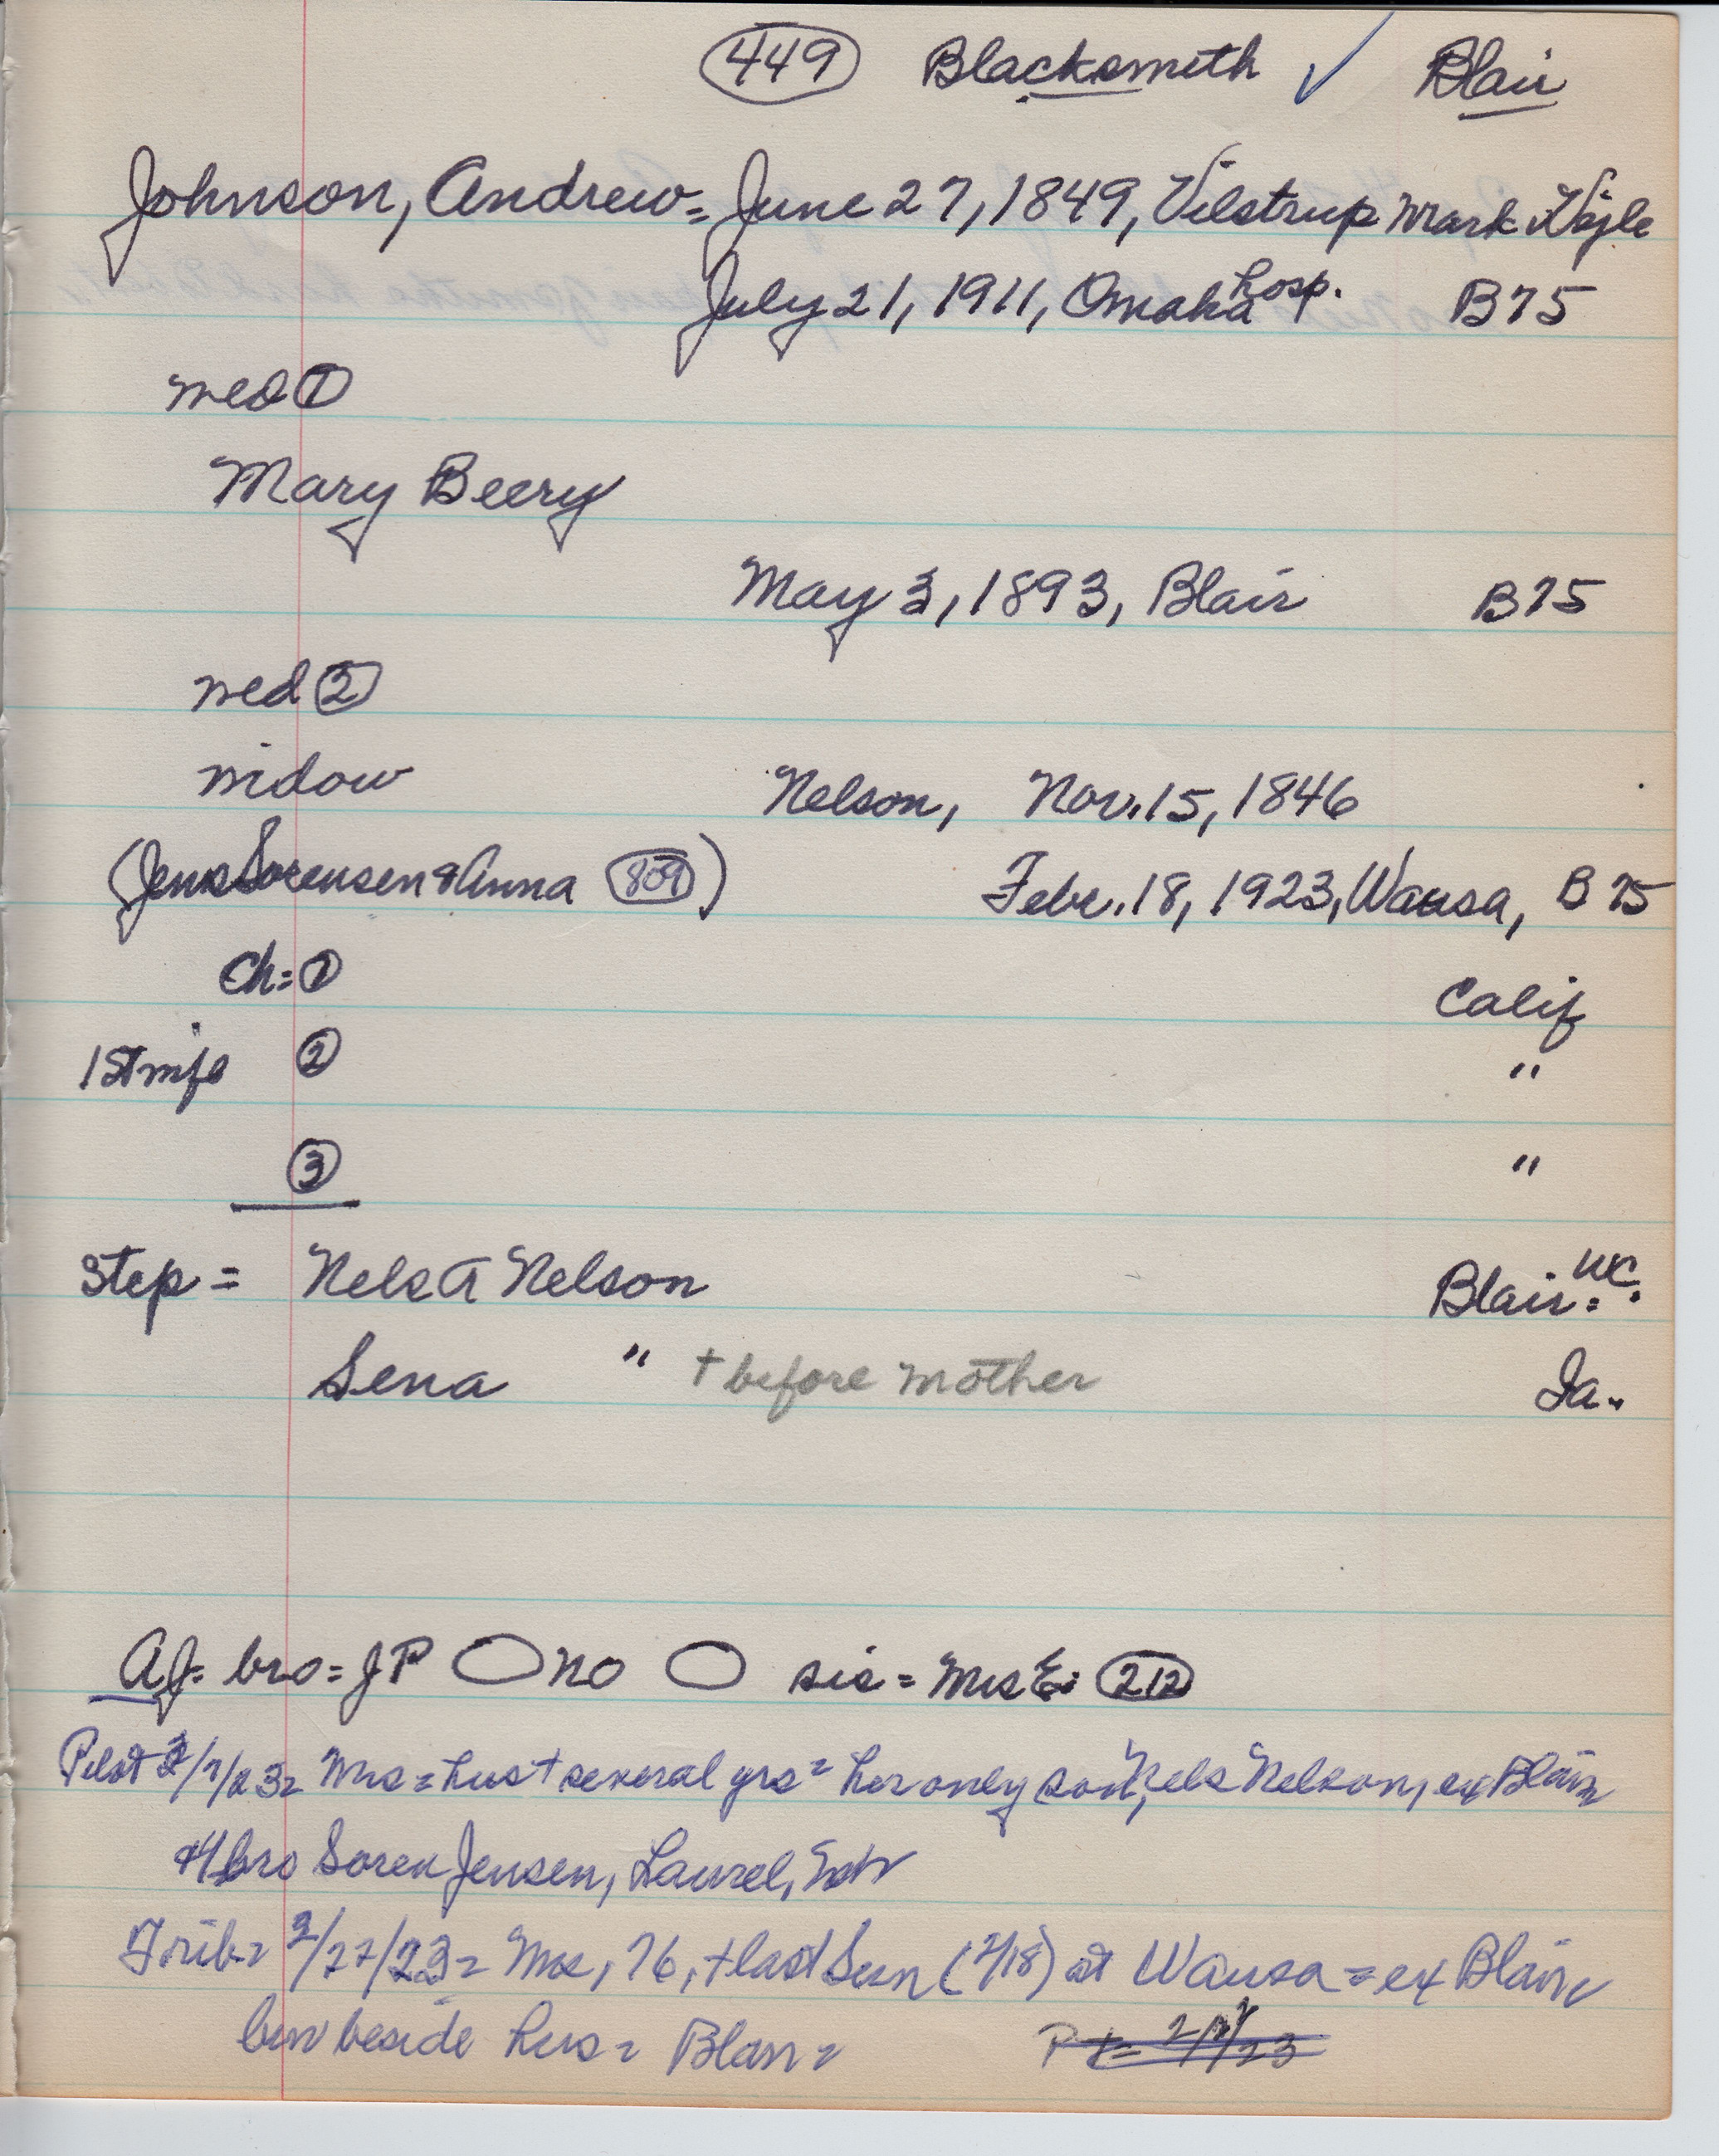 449 Blacksmith ✓ Blair
Johnson, Andrew = June 27, 1849, Vilstrup Mark Vejle
July 21, 1911, Omaha hosp. B75
med ①
Mary Beery
May 3, 1893, Blair B75
med ②
widow Nelson, Nov. 15, 1846
(Jens Sorensen & Anna 809) Febr. 18, 1923, Wausa, B75
Ch = ① Calif
1st wife ② "
③ "
Step = Nels A Nelson Blair = WC.
Sena " + before mother Ia.
AJ = bro = JP no sis = Mrs E: 212
Pilot /1/23 = Mrs = hus + several yrs = her only son, Nels Nelson, ex Blair
bro Soren Jensen, Laurel, Neb
Trib = 2/27/23 = Mrs, 76, + last Sun (2/18) at Wausa = ex Blair
bur beside hus = Blair =